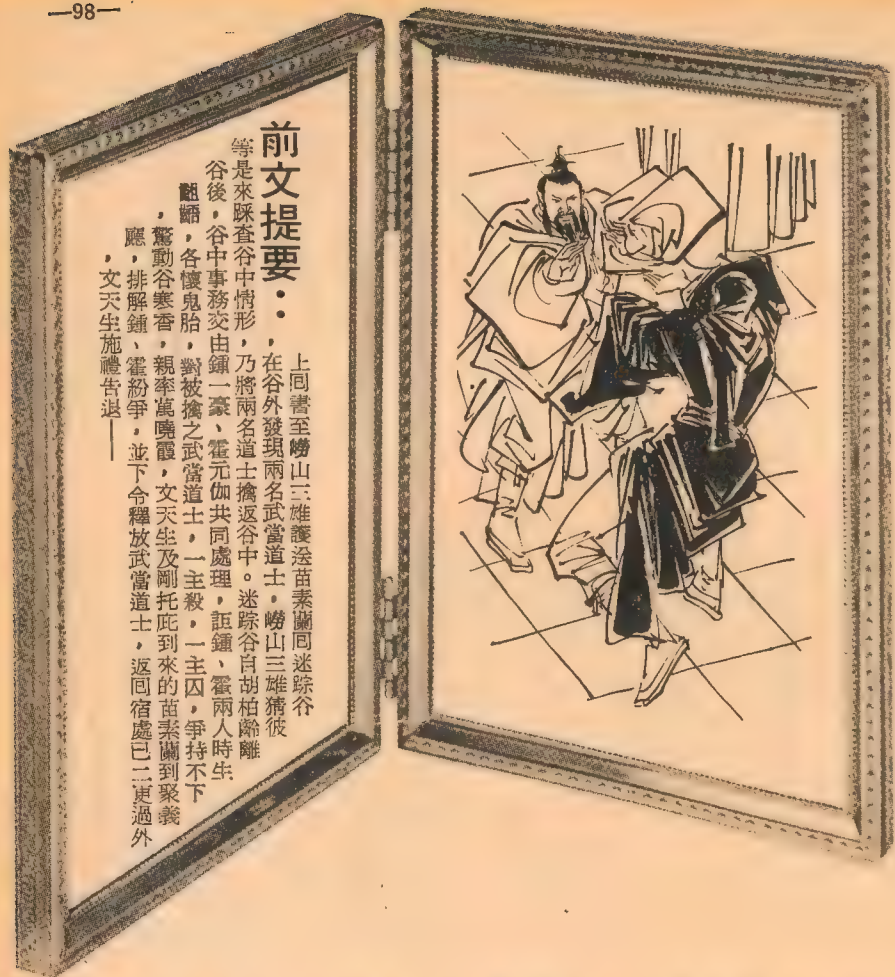 —98—
前文提要：
上回書至嶗山三雄護送苗素蘭回迷踪谷
，在谷外發現兩名武當道士，嶗山三雄猜彼
等是來踩查谷中情形，乃將兩名道士擒返谷中。迷踪谷自胡柏齡離
谷後，谷中事務交由鍾一豪、霍元伽共同處理，詎鍾、霍兩人時生
齟齬，各懷鬼胎，對被擒之武當道士，一主殺，一主囚，爭持不下
，驚動谷寒香，親率萬曉霞，文天生及剛托庇到來的苗素蘭到聚義
廳，排解鍾、霍紛爭，並下令釋放武當道士，返回宿處已二更過外
，文天生施禮告退——